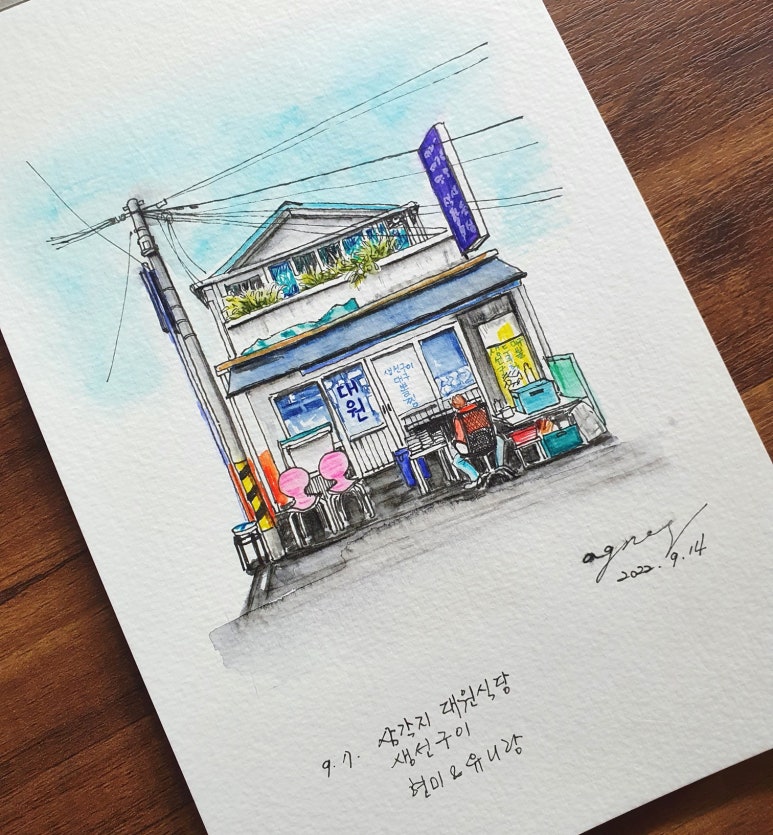 대원
생선구이
대구
뽈찜
agnes
2022. 9. 14
9. 7. 삼각지 대원식당
생선구이
현미 & 유니랑